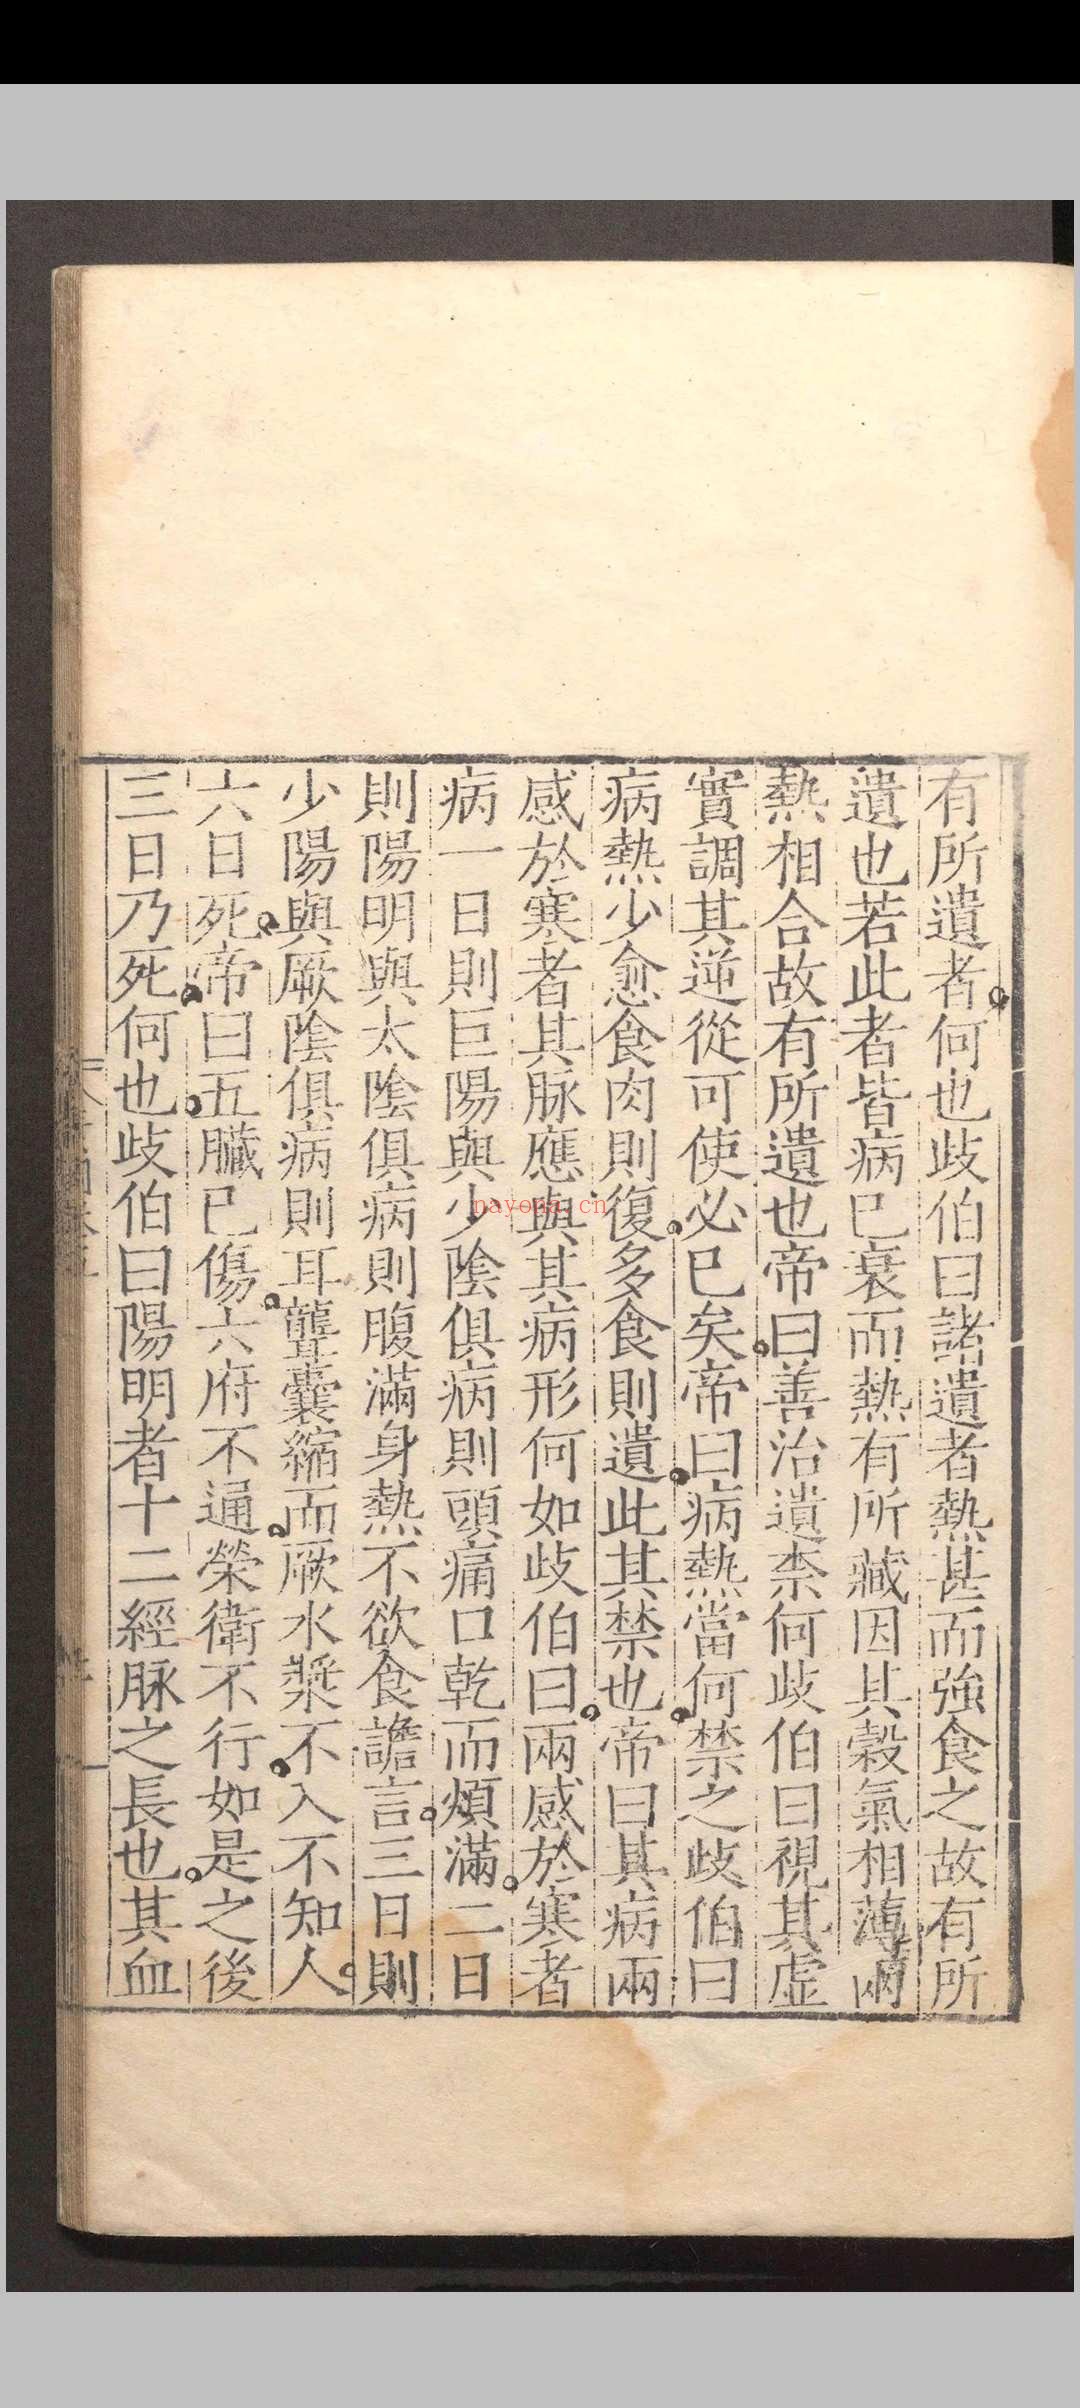 有所遺者何也歧伯曰諸遺者熱甚而強食之故有所
遺也若此者皆病已衰而熱有所藏因其穀氣相薄兩
熱相合故有所遺也帝曰善治遺柰何歧伯曰視其虛
實調其逆從可使必已矣帝曰病熱當何禁之歧伯曰
病熱少愈食肉則復多食則遺此其禁也帝曰其病兩
感於寒者其脉應與其病形何如歧伯曰兩感於寒者
病一日則巨陽與少陰俱病則頭痛口乾而煩滿二日
則陽明與太陰俱病則腹滿身熱不欲食譫言三日則
少陽與厥陰俱病則耳聾囊縮而厥水漿不入不知人
六日死帝曰五臟已傷六府不通榮衛不行如是之後
三日乃死何也歧伯曰陽明者十二經脉之長也其血
nayona.cn